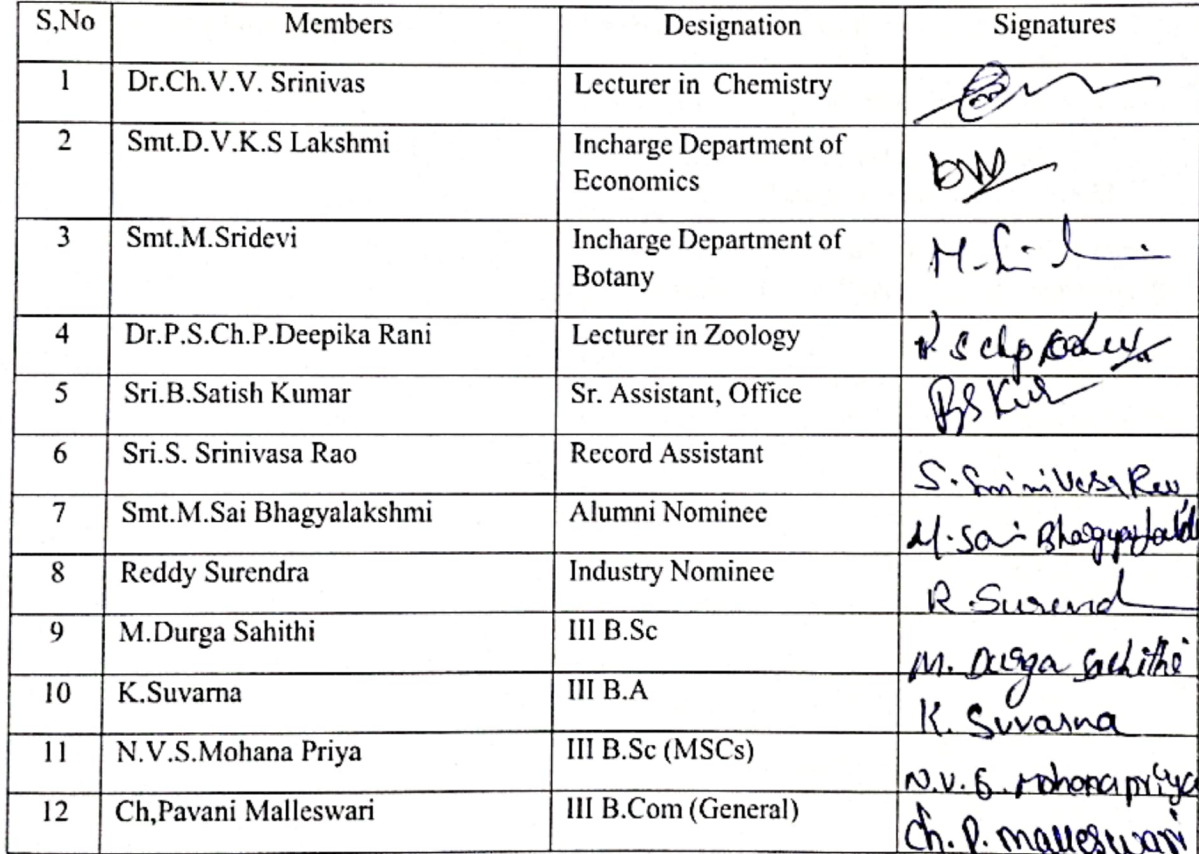 S,No Members Designation Signatures
1 Dr.Ch.V.V. Srinivas Lecturer in Chemistry
2 Smt.D.V.K.S Lakshmi Incharge Department of
Economics
3 Smt.M.Sridevi Incharge Department of
Botany
4 Dr.P.S.Ch.P.Deepika Rani Lecturer in Zoology
5 Sri.B.Satish Kumar Sr. Assistant, Office
6 Sri.S. Srinivasa Rao Record Assistant S. Srinivasa Rao
7 Smt.M.Sai Bhagyalakshmi Alumni Nominee M. Sai
8 Reddy Surendra Industry Nominee R. Surend
9 M.Durga Sahithi III B.Sc M. Durga Sahithi
10 K.Suvarna III B.A K. Suvarna
11 N.V.S.Mohana Priya III B.Sc (MSCs) N.V.S. Mohana priya
12 Ch,Pavani Malleswari III B.Com (General) Ch. P. Malleswari